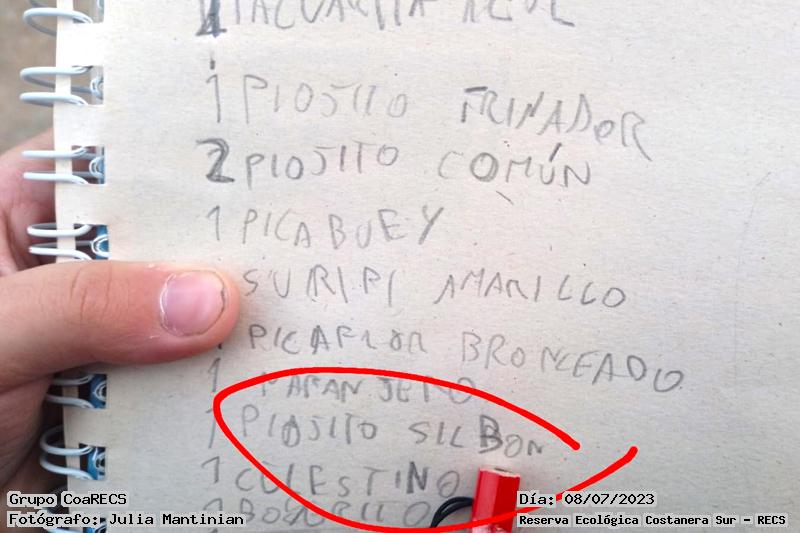 TACUARITA AZUL
1 PIOJITO TRINADOR
2 PIOJITO COMÚN
1 PICABUEY
SURIRI AMARILLO
PICAFLOR BRONCEADO
1 NARANJERO
1 PIOJITO SILBON
1 CELESTINO
Grupo CoaRECS
Fotógrafo: Julia Mantinian
Día: 08/07/2023
Reserva Ecológica Costanera Sur - RECS